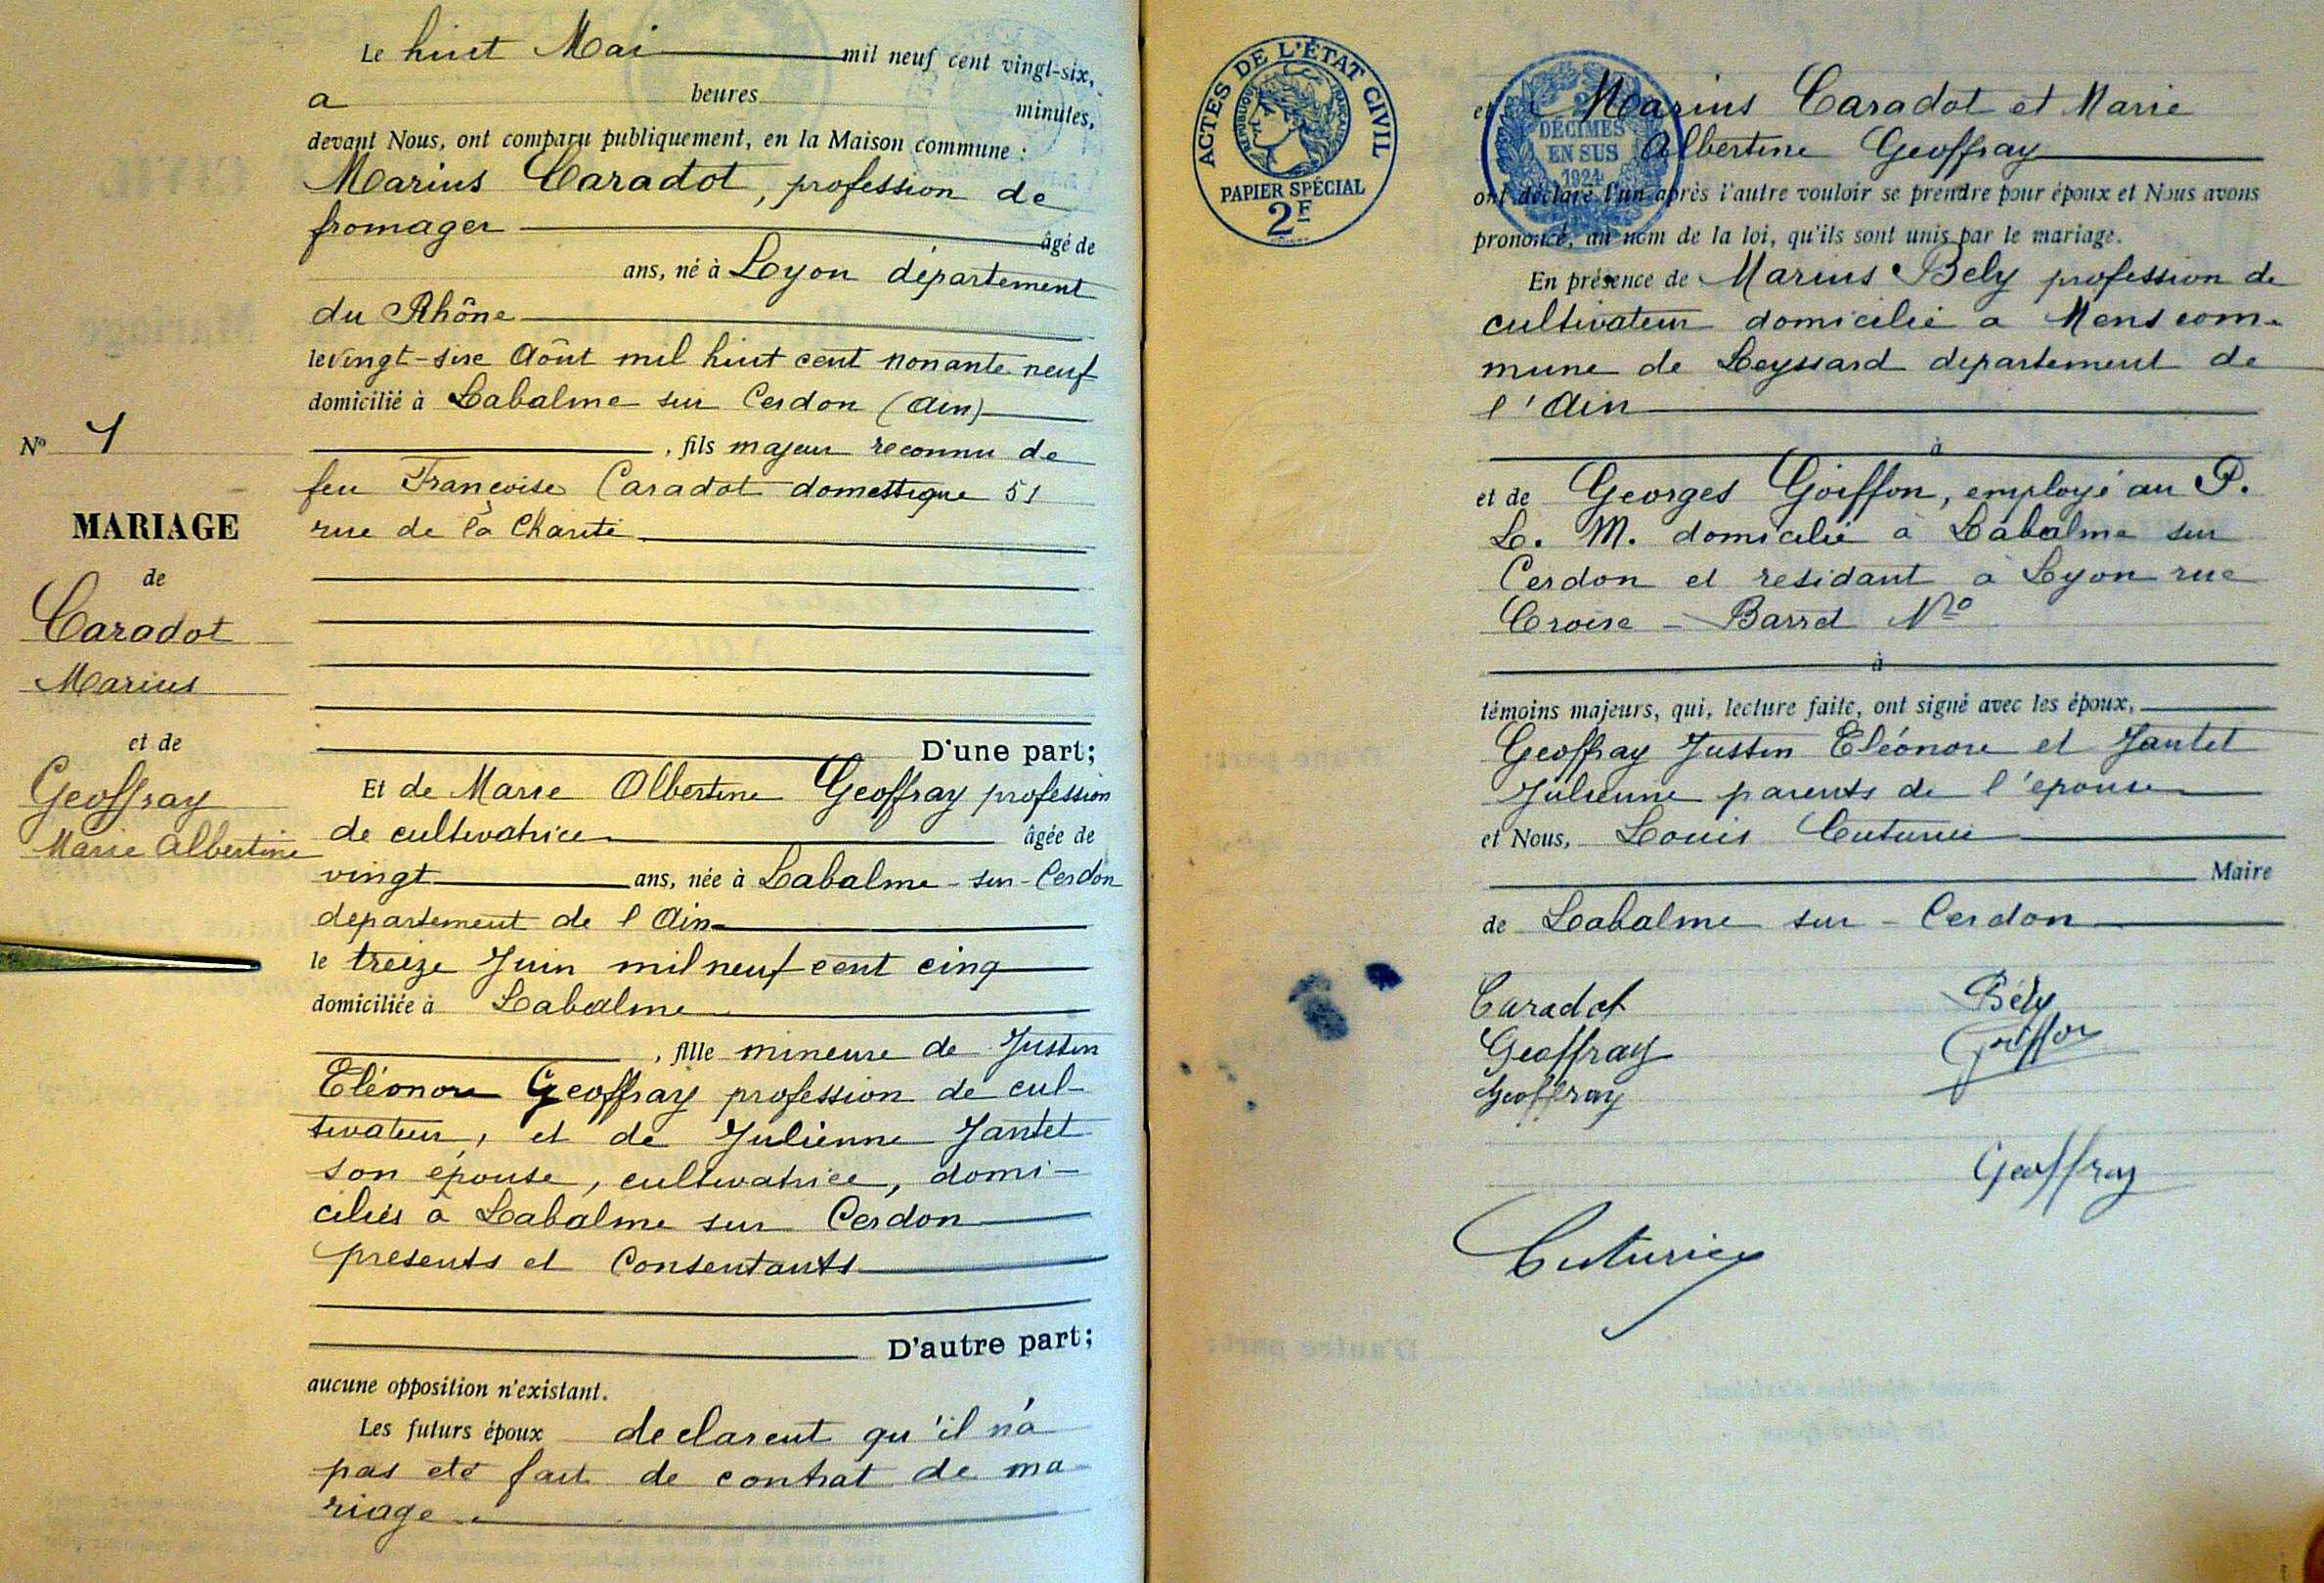 Le huit Mai mil neuf cent vingt-six,
a heures minutes,
devant Nous, ont comparu publiquement, en la Maison commune :
Marius Caradot, profession de
fromager âgé de
ans, né à Lyon département
du Rhône
le vingt-six Août mil huit cent nonante neuf
domicilié à Labalme sur Cerdon (Ain)
, fils majeur reconnu de
feu Françoise Caradot domestique 51
rue de la Charité
D'une part;
Et de Marie Albertine Geoffray profession
de cultivatrice âgée de
vingt ans, née à Labalme-sur-Cerdon
département de l Ain
le treize Juin mil neuf cent cinq
domiciliée à Labalme
, fille mineure de Justin
Eléonore Geoffray profession de cul-
tivateur, et de Julienne Jantet
son épouse, cultivatrice, domi-
ciliés à Labalme sur Cerdon
présents et Consentants
D'autre part;
aucune opposition n'existant.
Les futurs époux déclarent qu'il n'a
pas été fait de contrat de ma-
riage
No 1
MARIAGE
de
Caradot
Marius
et de
Geoffray
Marie Albertine
ACTES DE L'ÉTAT CIVIL
RÉPUBLIQUE FRANÇAISE
PAPIER SPÉCIAL
2F
2
DÉCIMES
EN SUS
1924
et Marius Caradot et Marie
Albertine Geoffray
ont déclaré l'un après l'autre vouloir se prendre pour époux et Nous avons
prononcé, au nom de la loi, qu'ils sont unis par le mariage.
En présence de Marius Bely profession de
cultivateur domicilié a Mens com-
mune de Leyssard département de
l'Ain
à
et de Georges Goiffon, employé au P.
L. M. domicilié à Labalme sur
Cerdon et résidant à Lyon rue
Croise - Barret No
à
témoins majeurs, qui, lecture faite, ont signé avec les époux,
Geoffray Justin Eléonore et Jantet
Julienne parents de l'épouse
et Nous, Louis Cuturier
Maire
de Labalme sur - Cerdon
Caradot Bély
Geoffray Goiffon
Geoffray
Geoffray
Cuturier